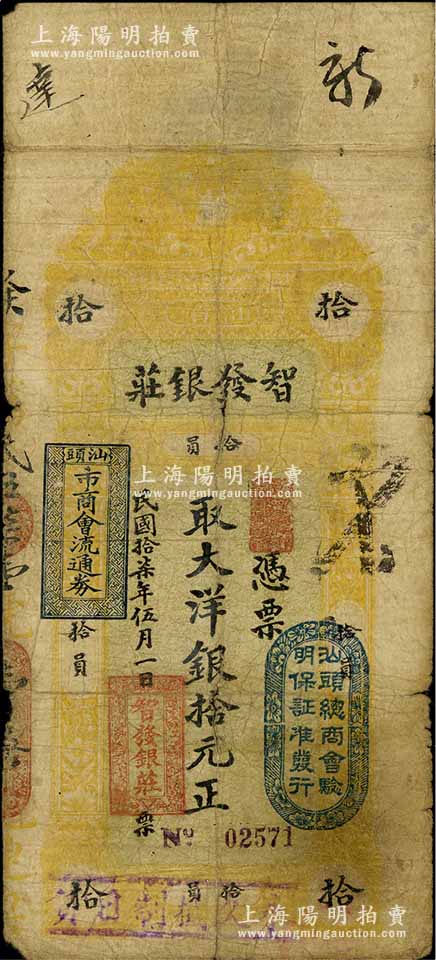 上海陽明拍賣
www.yangmingauction.com
新
達
拾
拾
智發銀莊
拾員
上海陽明拍賣
www.yangmingauction.com
憑票
取大洋銀拾元正
民國拾柒年伍月一日
票
汕頭
市商會流通券
拾員
拾員
汕頭總商會驗
明保証准發行
智發銀莊
No 02571
拾
拾員
拾
上海陽明拍賣
www.yangmingauction.com